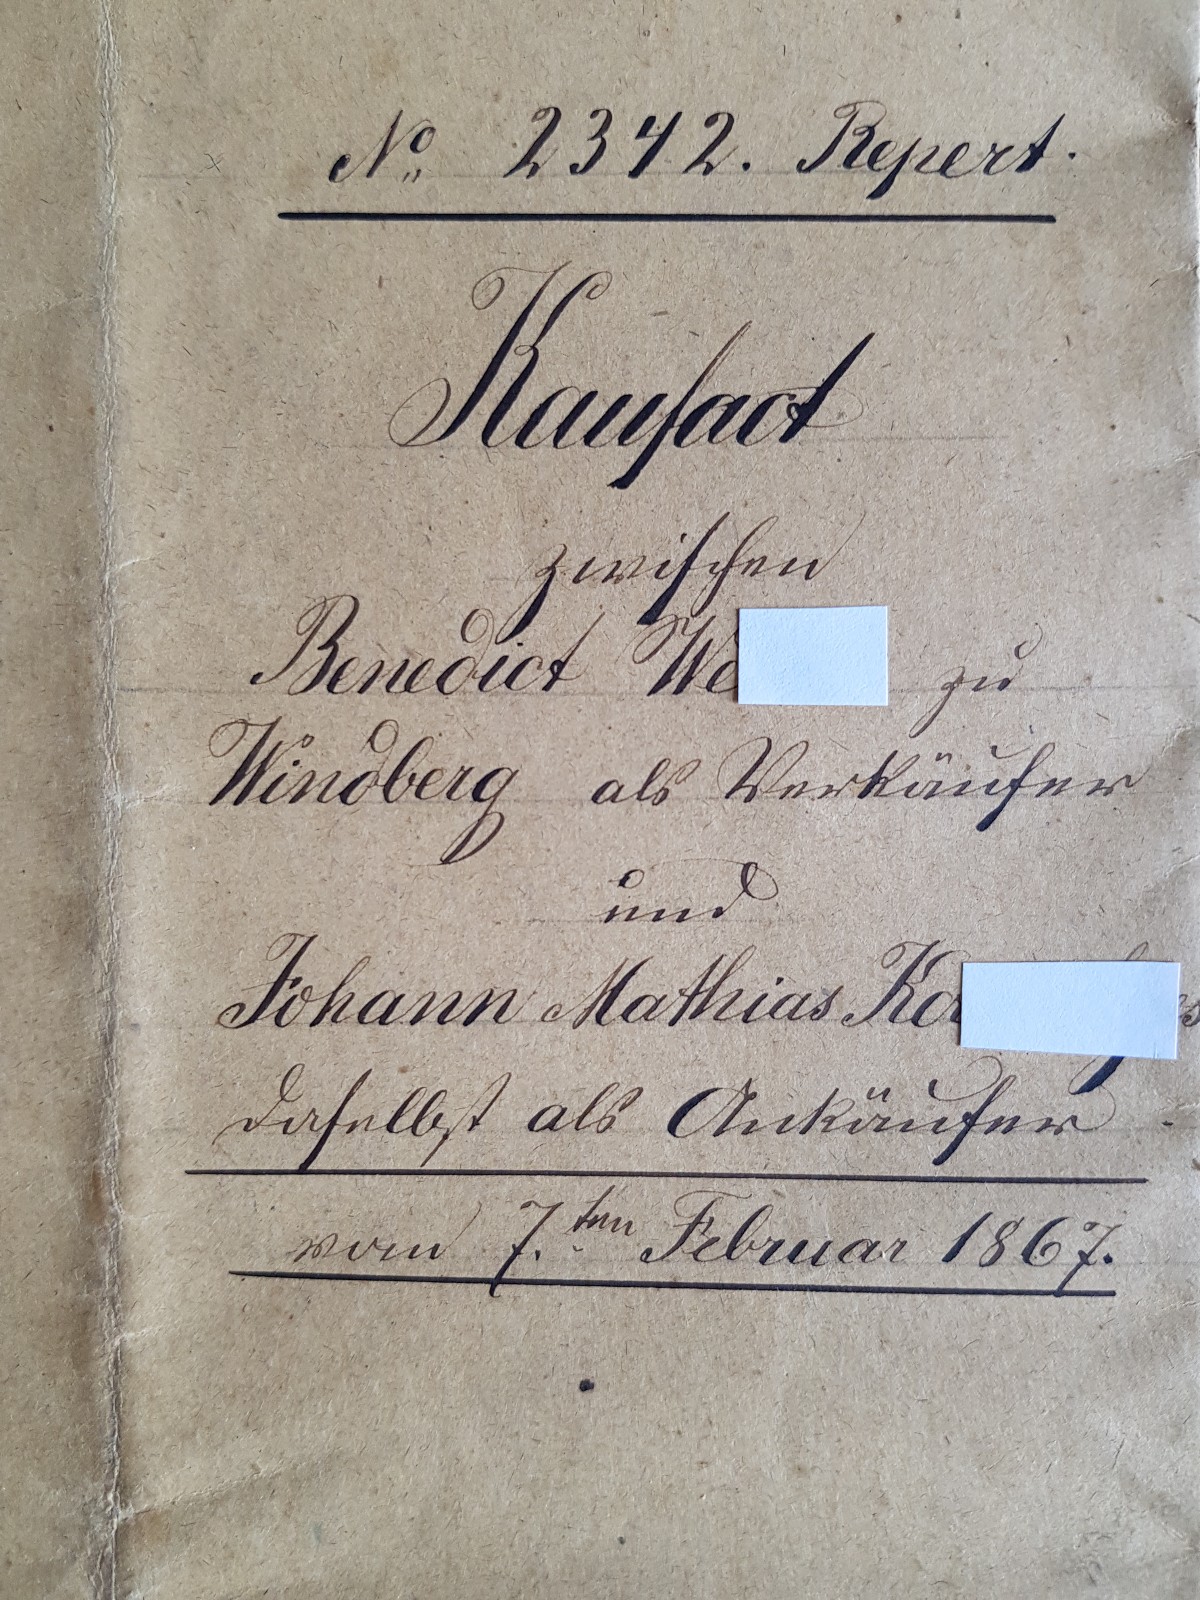 No 2342. Repert.
Kaufact
zwischen
Benedict We zu
Windberg als Verkäufer
und
Johann Mathias Ko s
daselbst als Ankäufer
vom 7.ten Februar 1867.